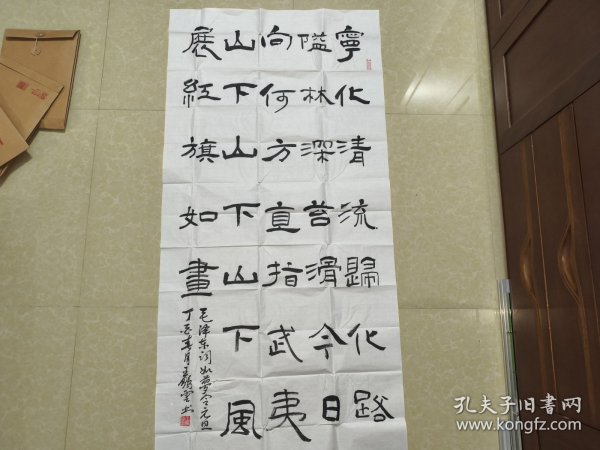 寧化清流歸化路
隘林深苔滑今日
向何方直指武夷
山下山下山下風
展紅旗如畫
毛泽东词如夢令元旦
丁春月王书
孔夫子旧书网
www.kongfz.com